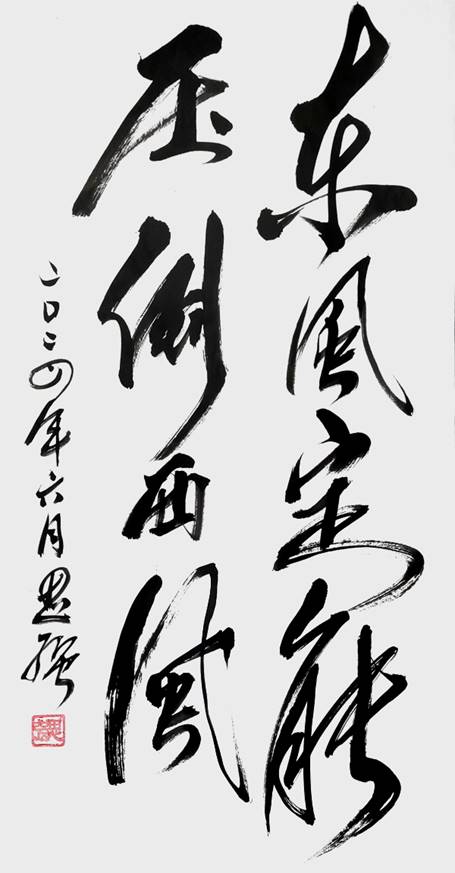 东風定能
压倒西風
二〇二四年六月思强